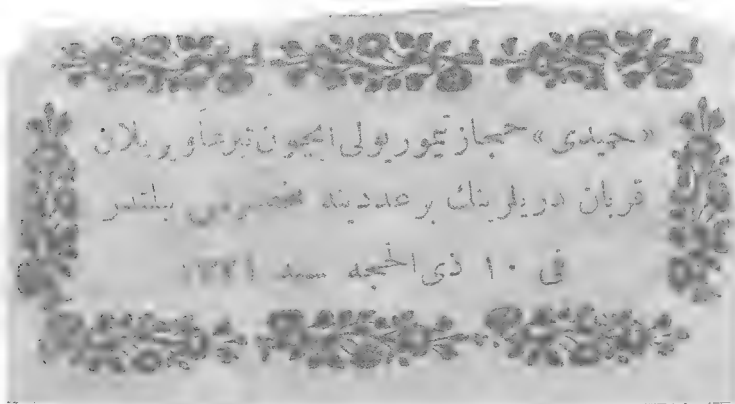 «حمیدی» حجاز تیمور یولی ایچون تبرعاً ویریلان
قربان دریلرینك بر عددینه مخصوص بیلتدر
فی ١٠ ذی الحجه سنه